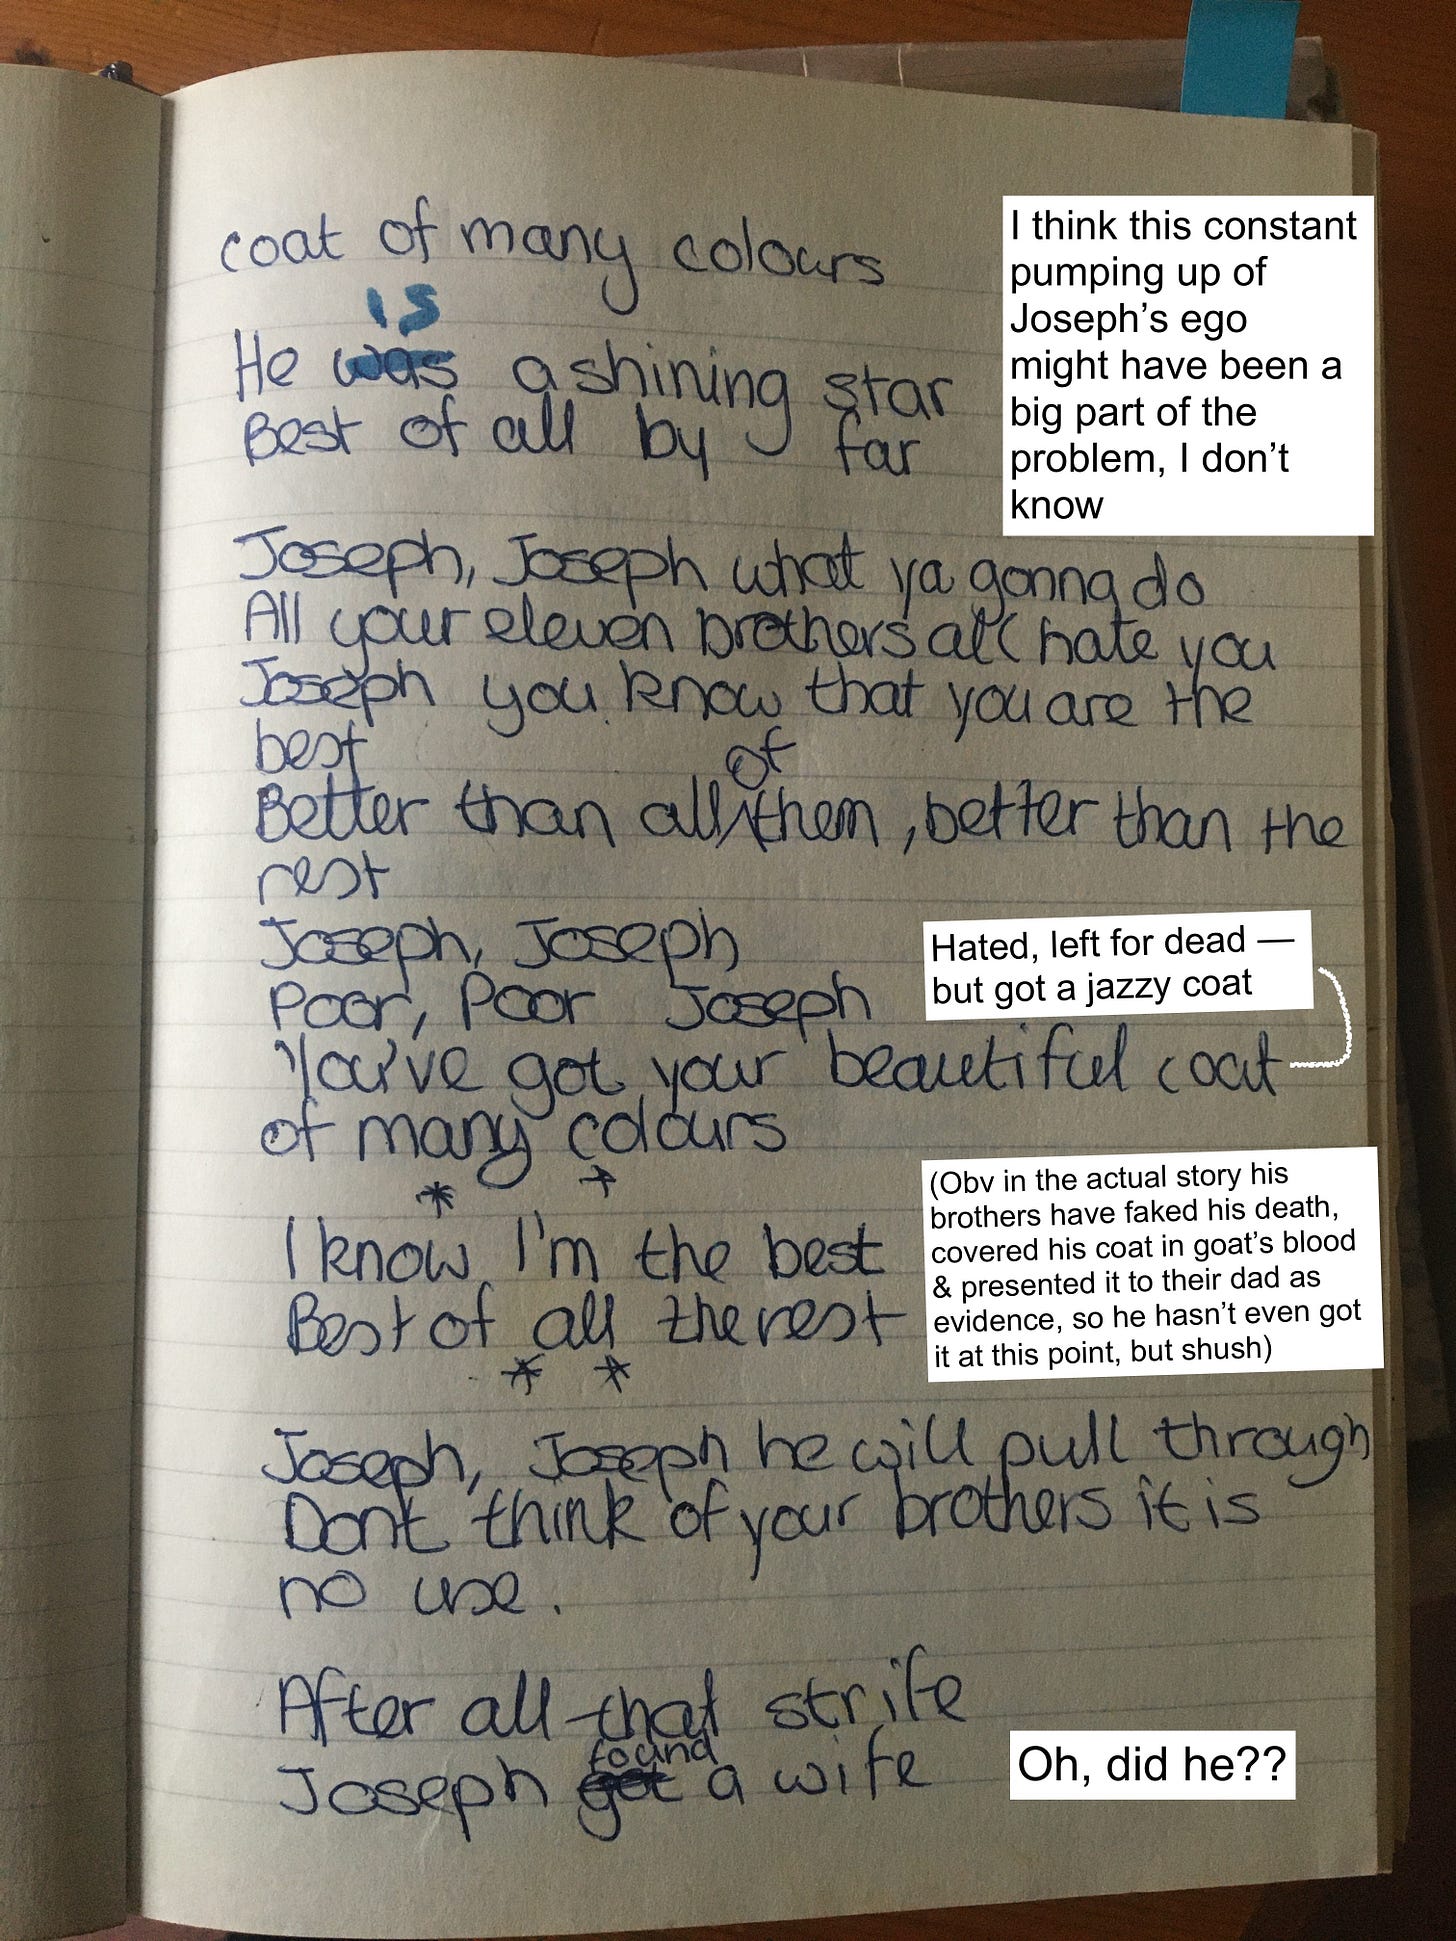 coat of many colours
is
He was a shining star
Best of all by far
I think this constant
pumping up of
Joseph's ego
might have been a
big part of the
problem, I don't
know
Joseph, Joseph what ya gonna do
All your eleven brothers all hate you
Joseph you know that you are the
best
of
Better than all them, better than the
rest
Joseph, Joseph
Poor, Poor Joseph
Hated, left for dead —
but got a jazzy coat
You've got your beautiful coat
of many colours
I know I'm the best
Best of all the rest
(Obv in the actual story his
brothers have faked his death,
covered his coat in goat's blood
& presented it to their dad as
evidence, so he hasn't even got
it at this point, but shush)
Joseph, Joseph he will pull through
Dont think of your brothers it is
no use.
After all that strife
found
Joseph got a wife
Oh, did he??